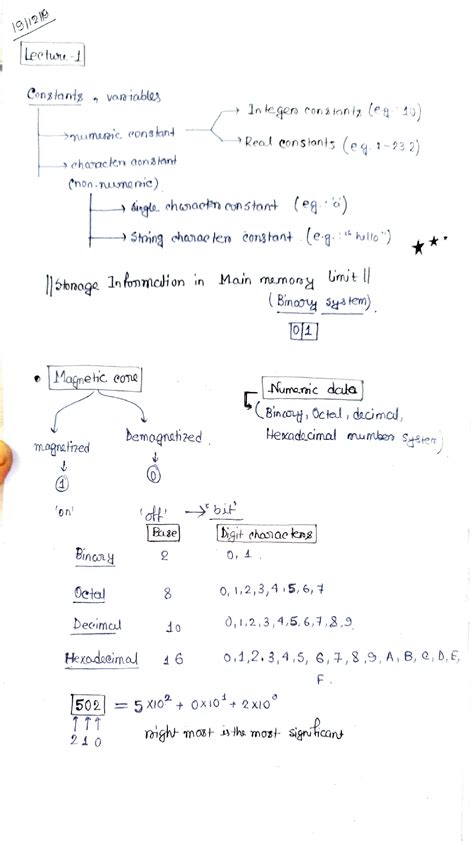 19/12/19
Lecture-1
Constants, variables
→numeric constant
→ Integer constants (eg. 10)
→ Real constants (e.g. 1-232)
→ character constant
(non-numeric)
→ single character constant (eg.: 'a')
→ String character constant (e.g.: "hello")
||Storage Information in Main memory Limit||
(Binary system)
0|1
• Magnetic core
Numeric data
(Binary, Octal, decimal,
Hexadecimal number system)
magnetized
Demagnetized
1
0
'on'
'off' → 'bit'
Base
Digit characters
Binary 2 0, 1.
Octal 8 0, 1, 2, 3, 4, 5, 6, 7
Decimal 10 0, 1, 2, 3, 4, 5, 6, 7, 8, 9
Hexadecimal 16 0, 1, 2, 3, 4, 5, 6, 7, 8, 9, A, B, C, D, E,
F.
502 = 5×10² + 0×10¹ + 2×10⁰
↑↑↑
2 1 0
right most is the most significant